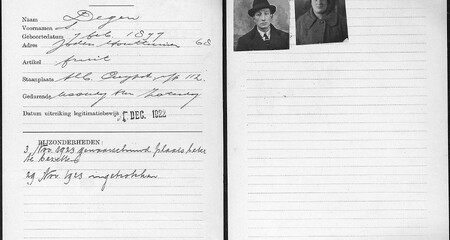 Naam Degen
Voornamen S.
Geboortedatum 7 Feb. 1877
Adres Joden Houttuinen 63
Artikel fruit
Staanplaats Alb. Cuypst. 112
Gedurende
Datum uitreiking legitimatiebewijs 5 DEC. 1922
BIJZONDERHEDEN:
3 Nov. 1923 gewaarschuwd plaats beter
te bezetten
29 Nov. 1923 ingetrokken